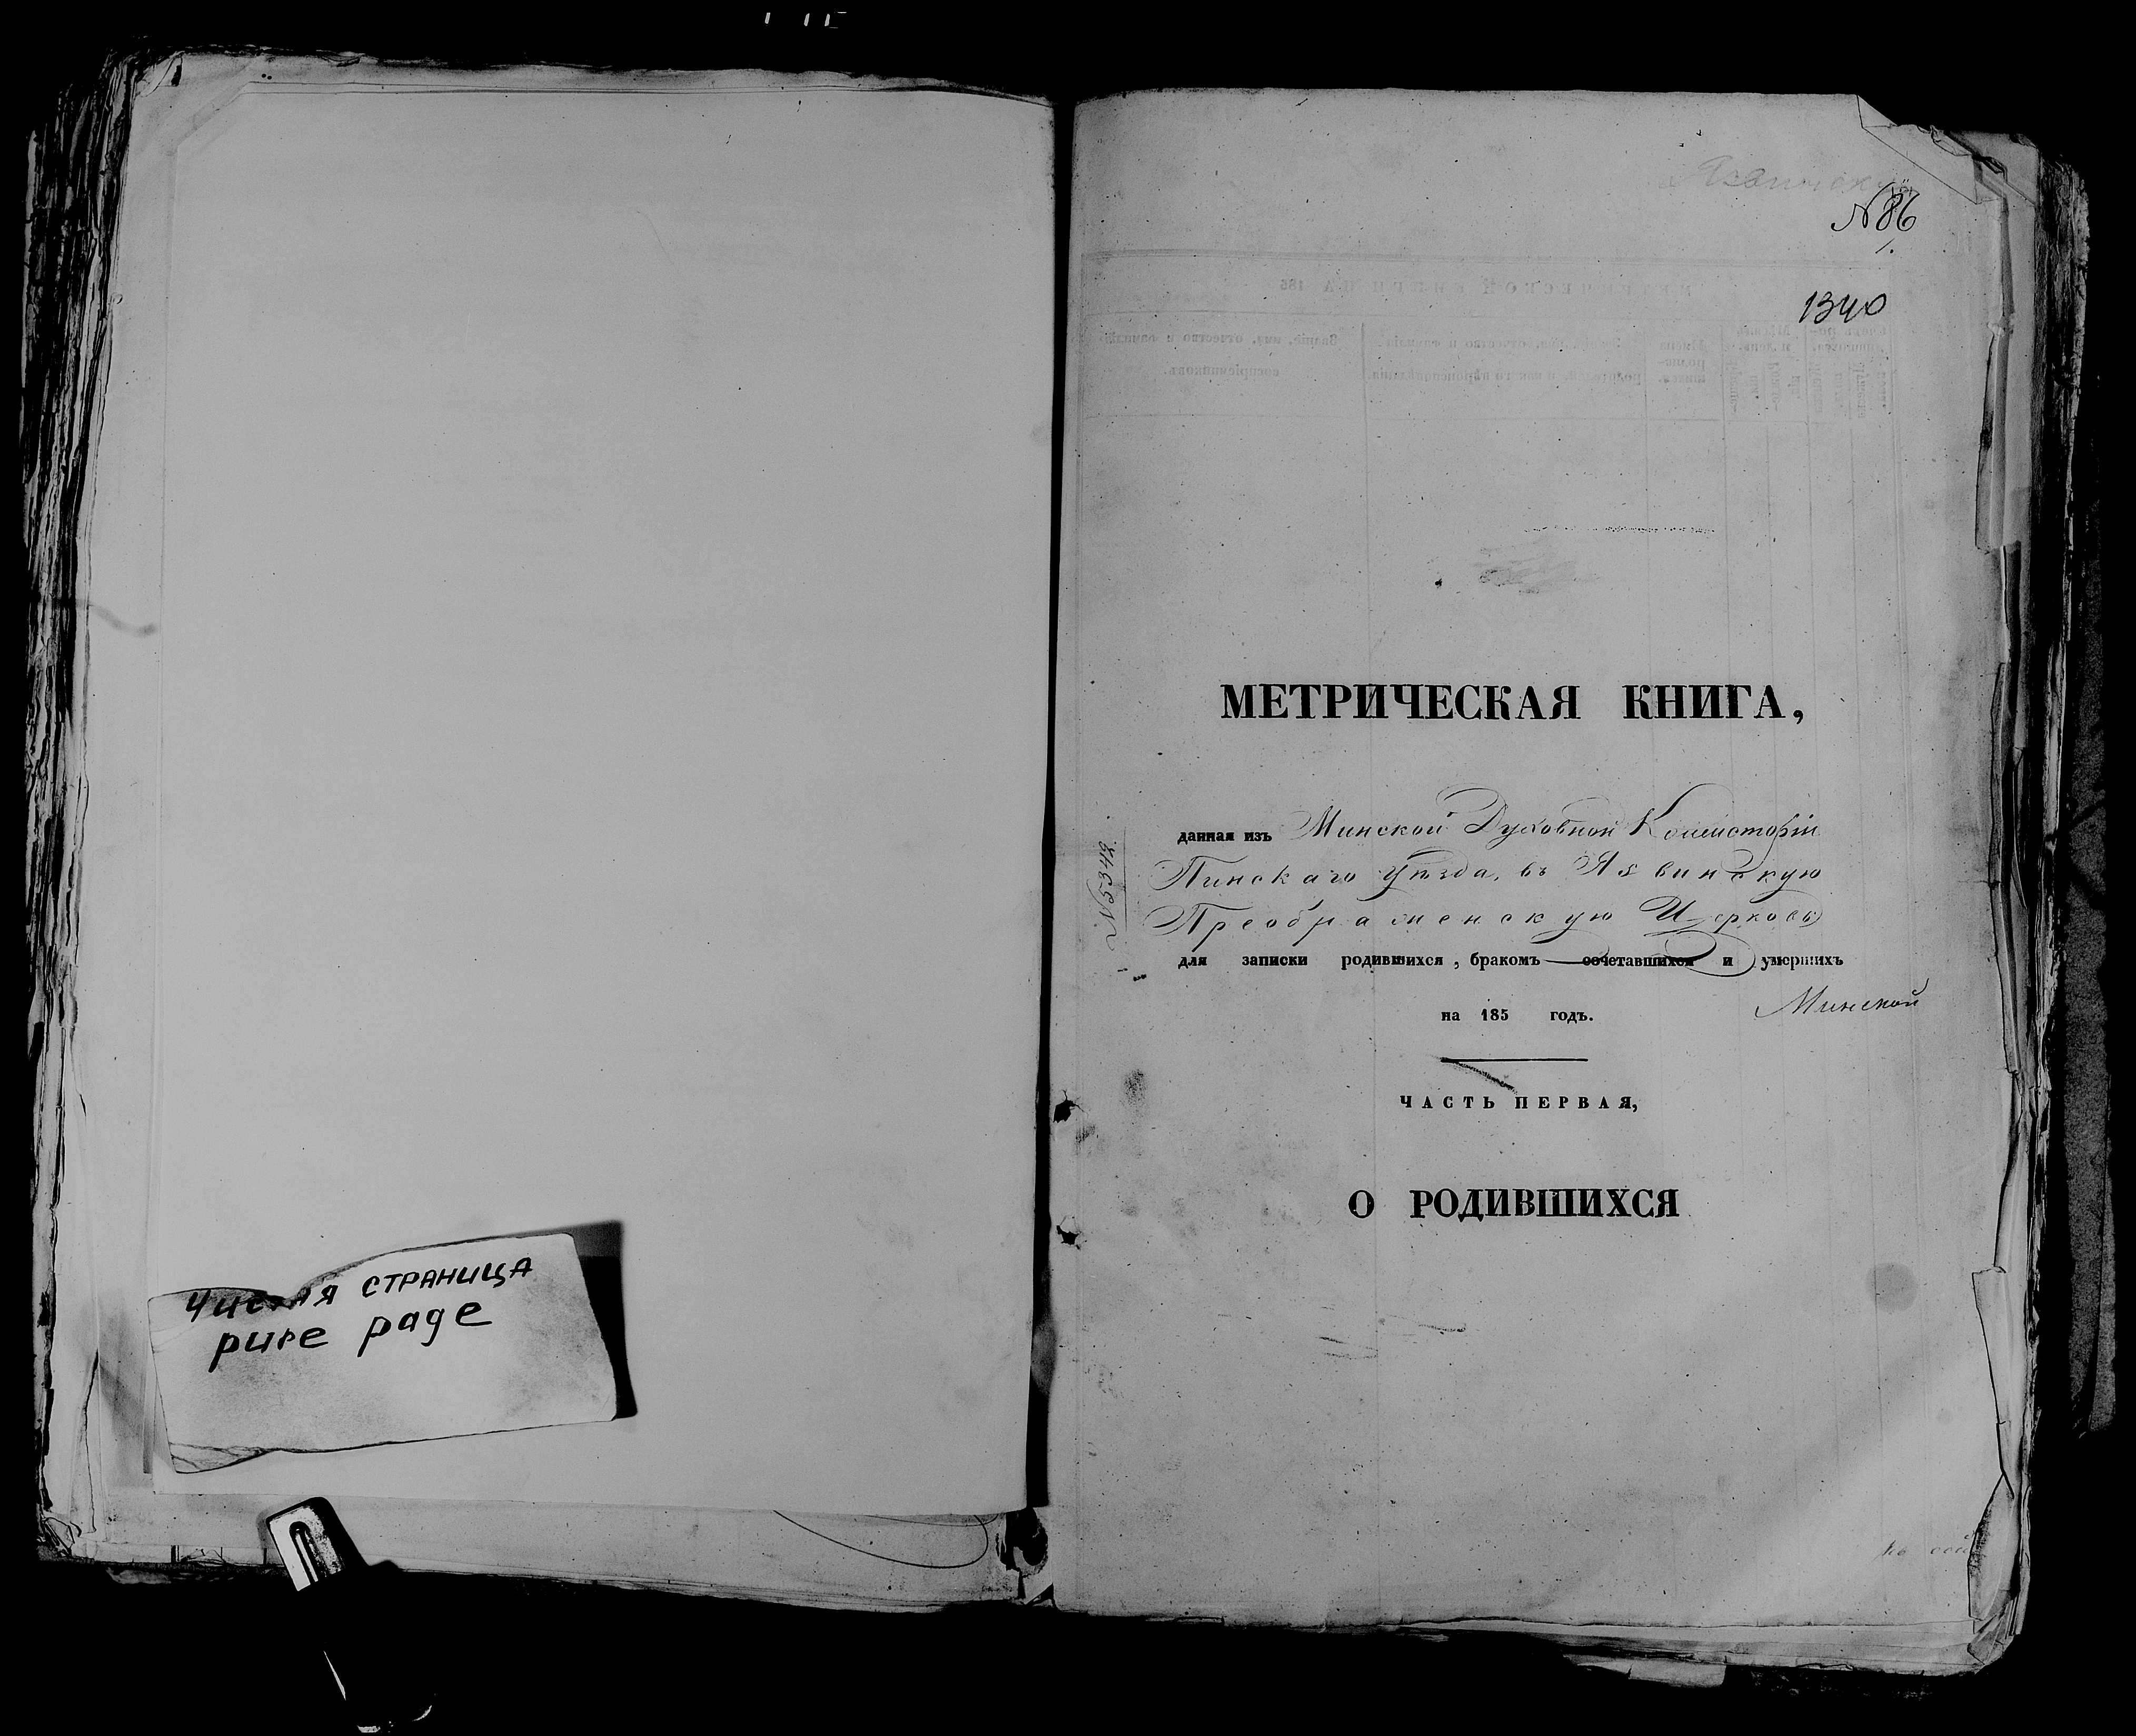 Чистая страница
pure page
№86
1.
1340
МЕТРИЧЕСКАЯ КНИГА,
данная изъ Минской Духовной Консисторіи
Пинскаго уѣзда, въ Язвинскую
Преображенскую Церковь
для записки родившихся, бракомъ сочетавшихся и умершихъ
на 185 годъ.
Минской
ЧАСТЬ ПЕРВАЯ,
О РОДИВШИХСЯ
№5342